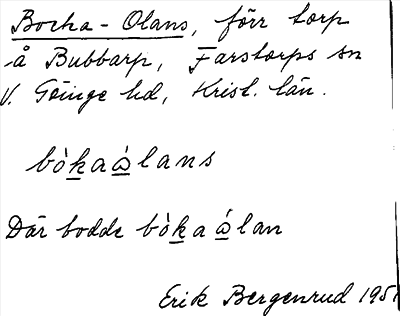 Bocka-Olans, förr torp
å Bubbarp, Farstorps sn
V. Göinge hd, Krist. län.
bòkaὼlans
Där bodde bòkaώlan
Erik Bergenrud 1951